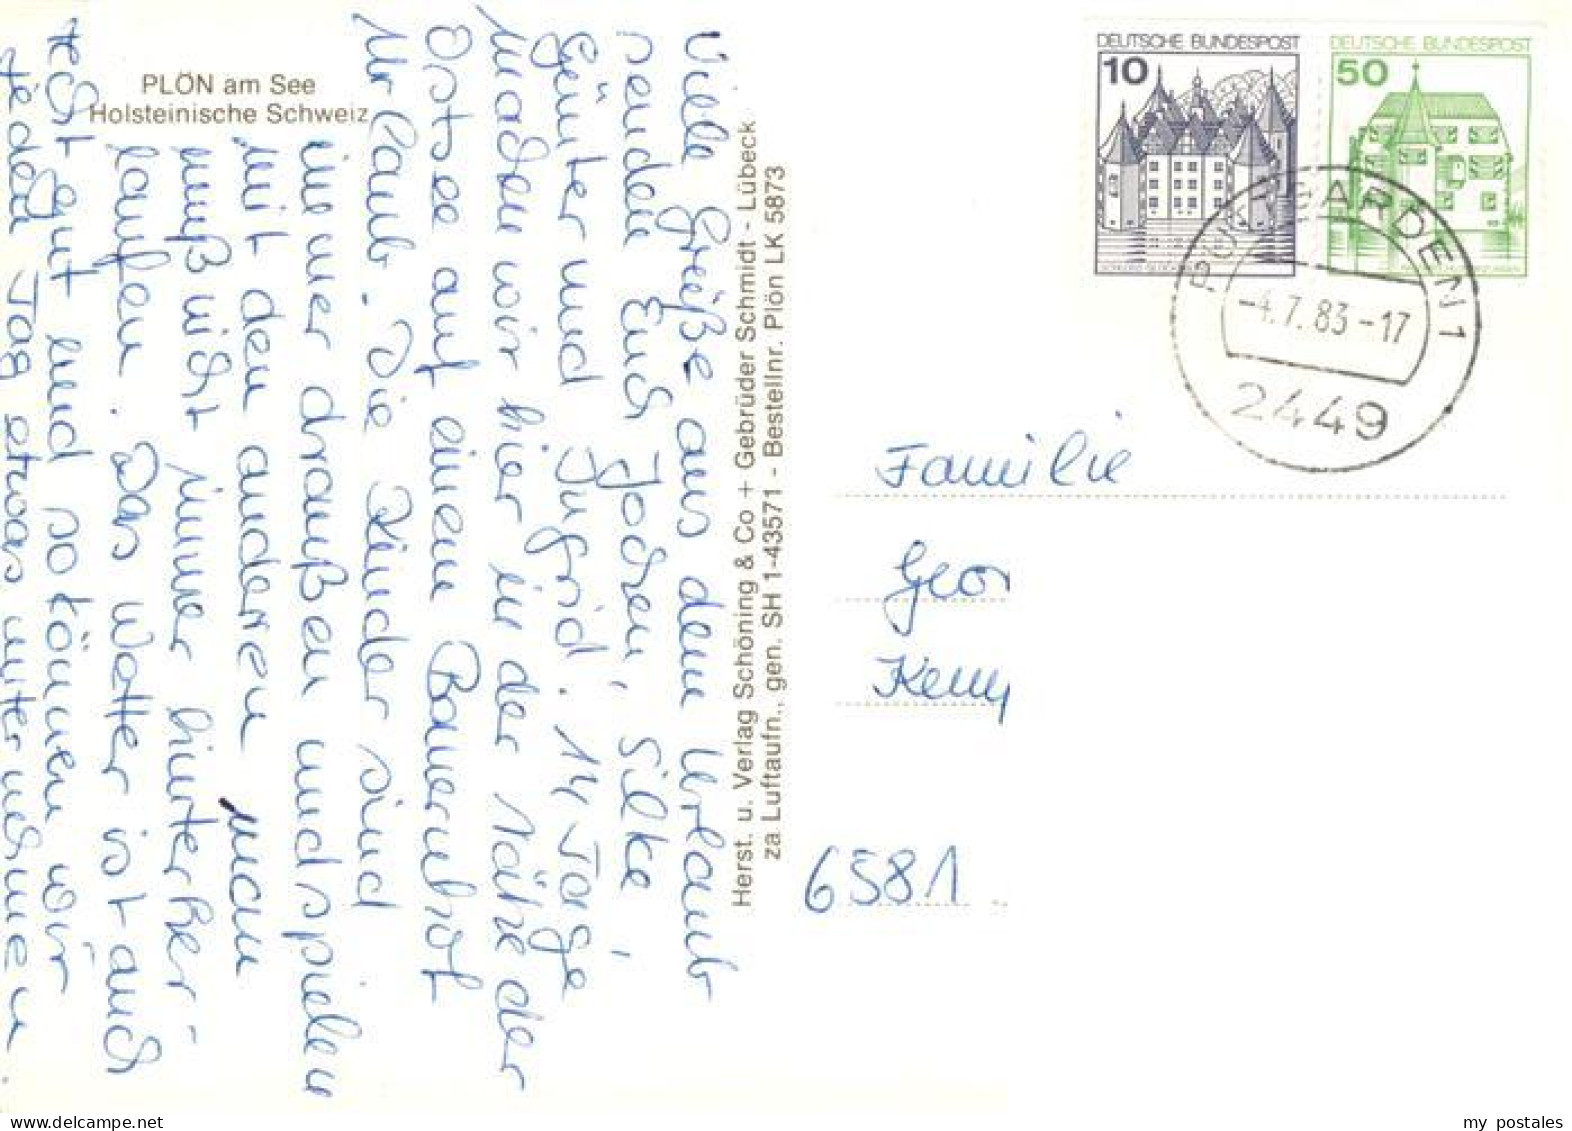 PLÖN am See
Holsteinische Schweiz
Viele Grüße aus dem Urlaub
senden Euch Jochen, Silke,
Günter und Ingrid. 14 Tage
machen wir hier in der Nähe der
Ostsee auf einem Bauernhof
Urlaub. Die Kinder sind
immer draußen und spielen
mit den anderen man
muß nicht immer hinterher-
laufen. Das Wetter ist auch
recht gut und so können wir
jeden Tag etwas unternehmen.
Herst. u. Verlag Schöning & Co + Gebrüder Schmidt - Lübeck
za Luftaufn., gen. SH 1-43571 - Bestellnr. Plön LK 5873
DEUTSCHE BUNDESPOST
10
DEUTSCHE BUNDESPOST
50
PUTTGARDEN 1
-4.7.83-17
2449
Familie
Geor
6581
my postales